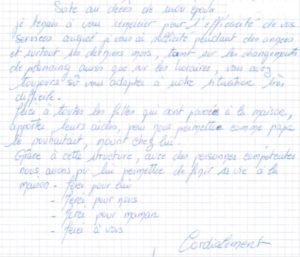 Suite au décès de mon époux
je tenais à vous remercier pour l'efficacité de vos
services auquel je vous ai sollicité pendant des années
et surtout les derniers mois, tant sur les changements
de planning aussi que sur les horaires, vous avez
toujours su vous adaptez à notre situation très
difficile.
Merci à toutes les filles qui sont passées à la maison,
apporter leurs aides, pour nous permettre comme papa
le souhaitait, mourir chez lui.
Grâce à cette structure, avec des personnes compétentes
nous avons pu lui permettre de finir sa vie à la
maison - Merci pour lui
- Merci pour nous
- Merci pour maman
- Merci à vous
Cordialement